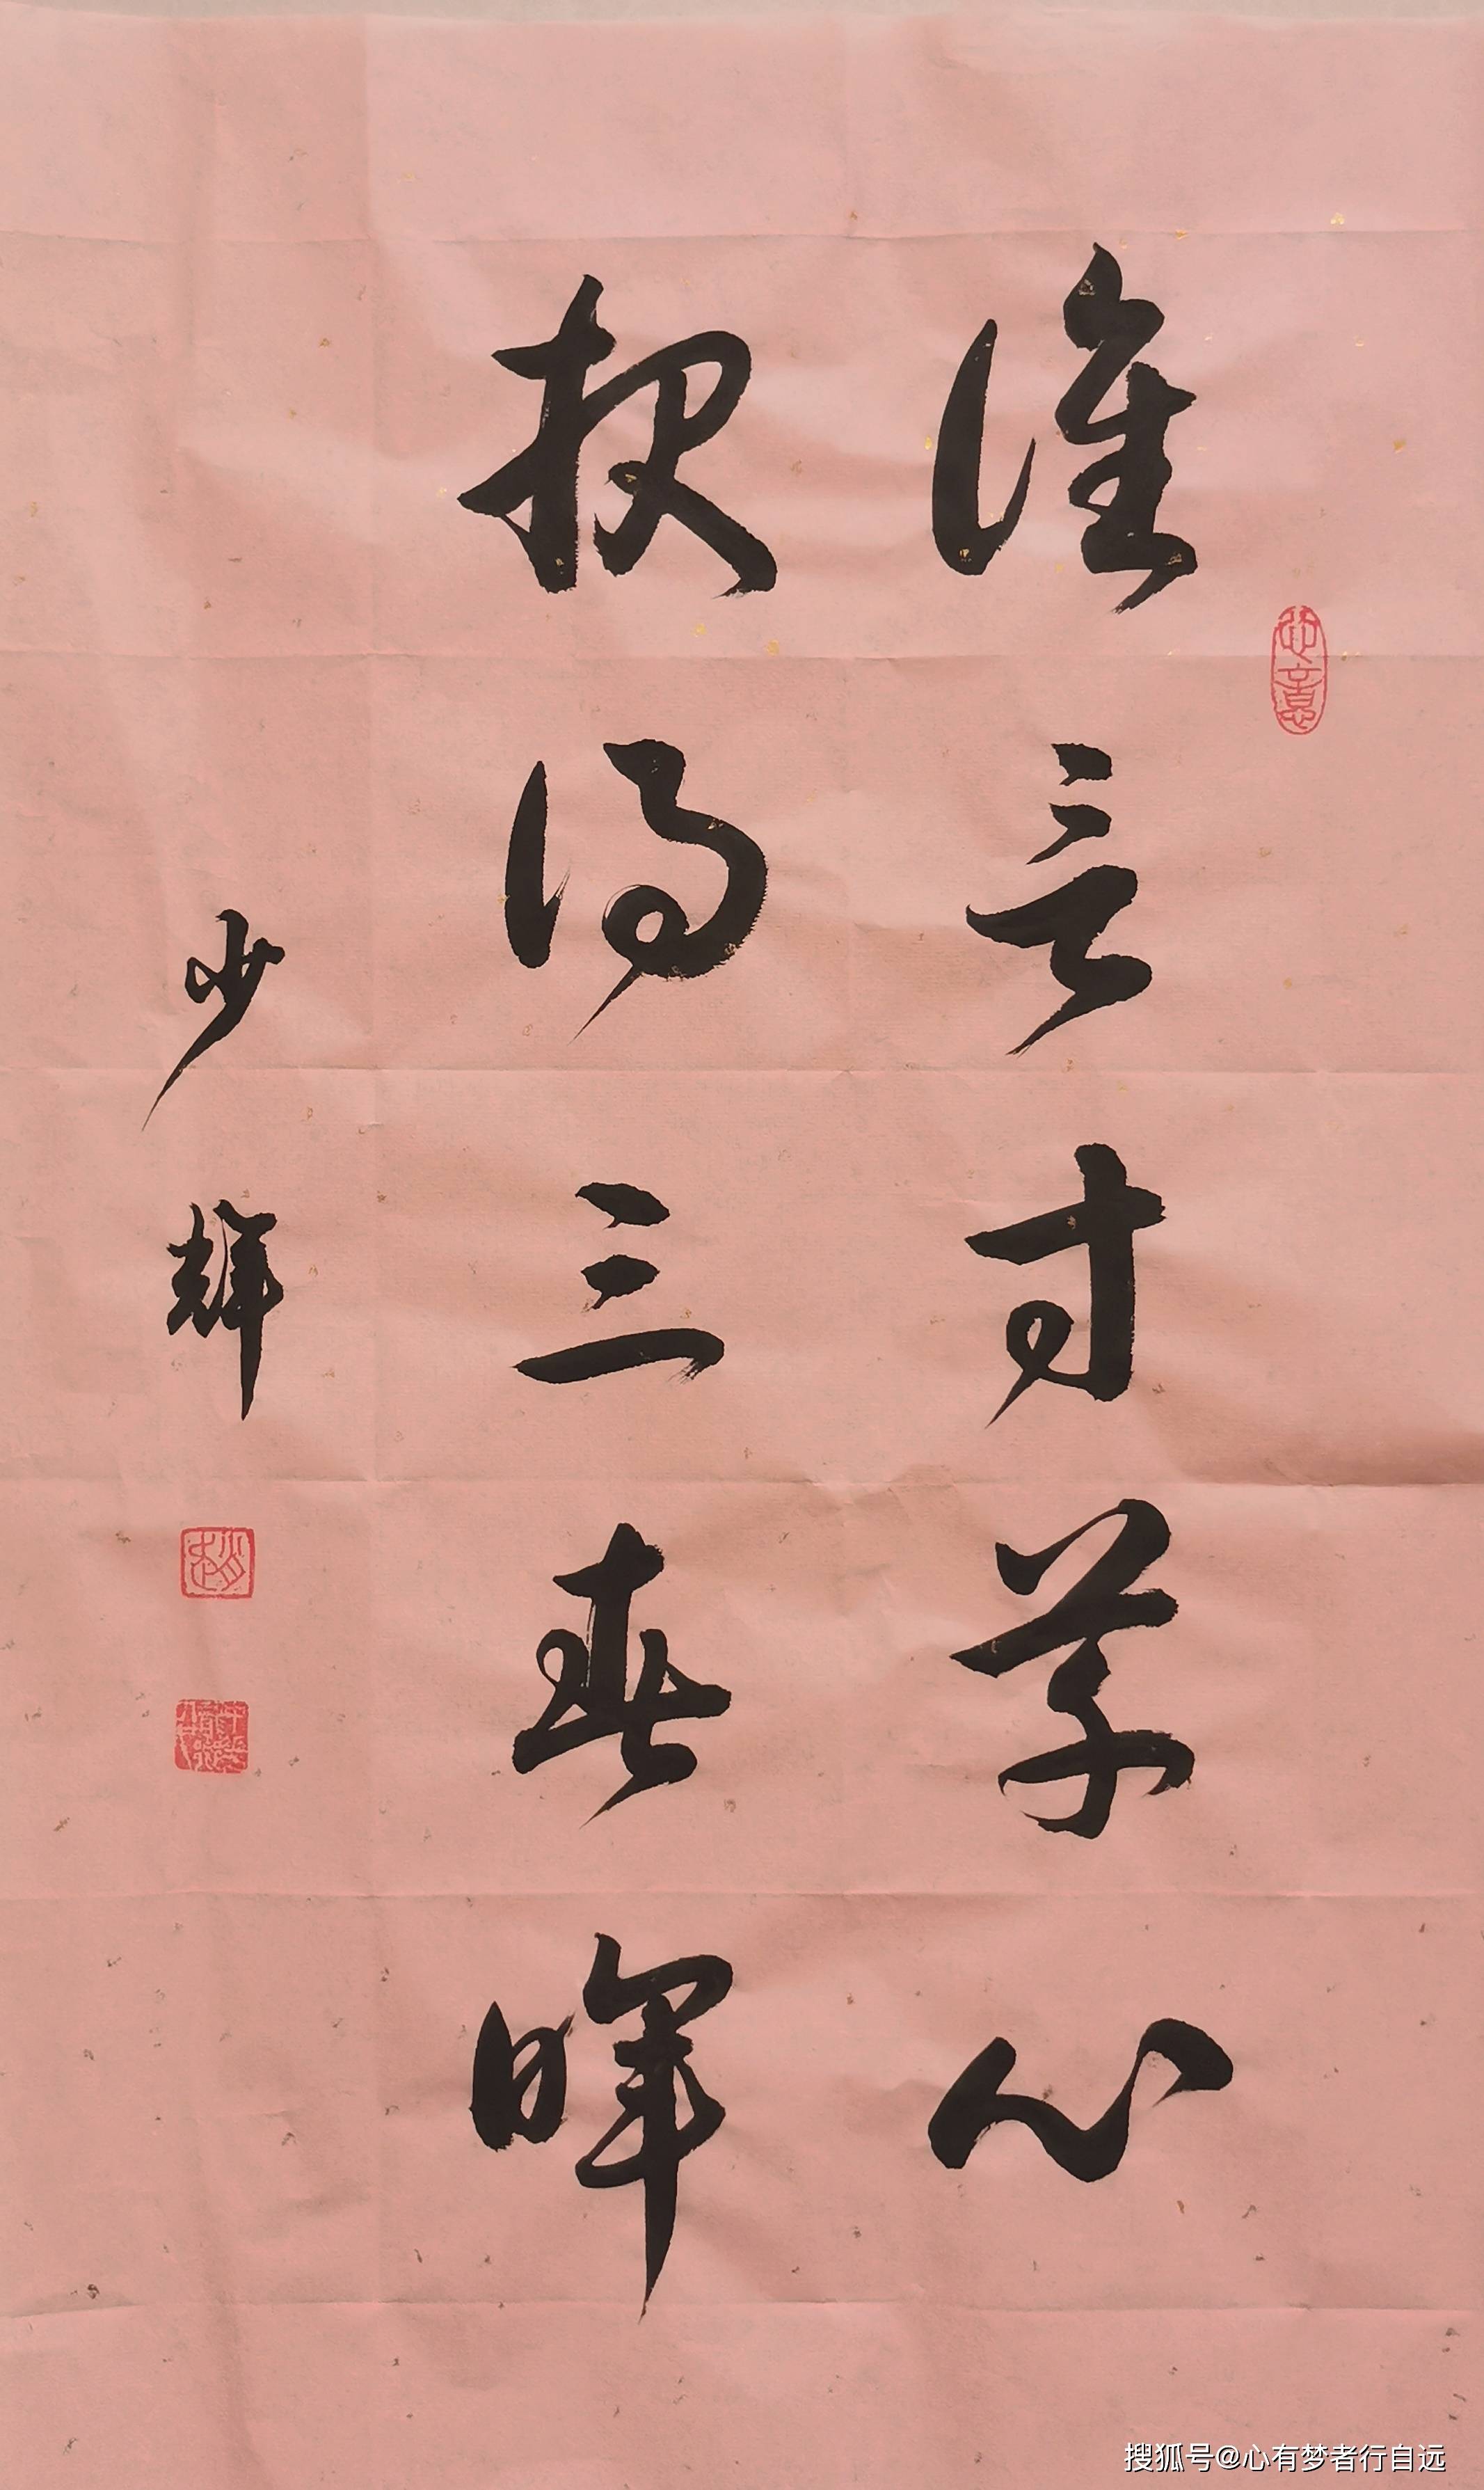 谁言寸草心
报得三春暉
少輝
趙
搜狐号@心有梦者行自远